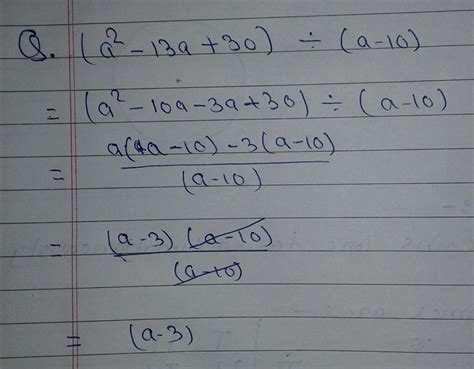 Q. (a² - 13a + 30) ÷ (a-10)
= (a² - 10a - 3a + 30) ÷ (a-10)
a(a-10) - 3(a-10)
= (a-10)
= (a-3) (a-10)
(a-10)
= (a-3)